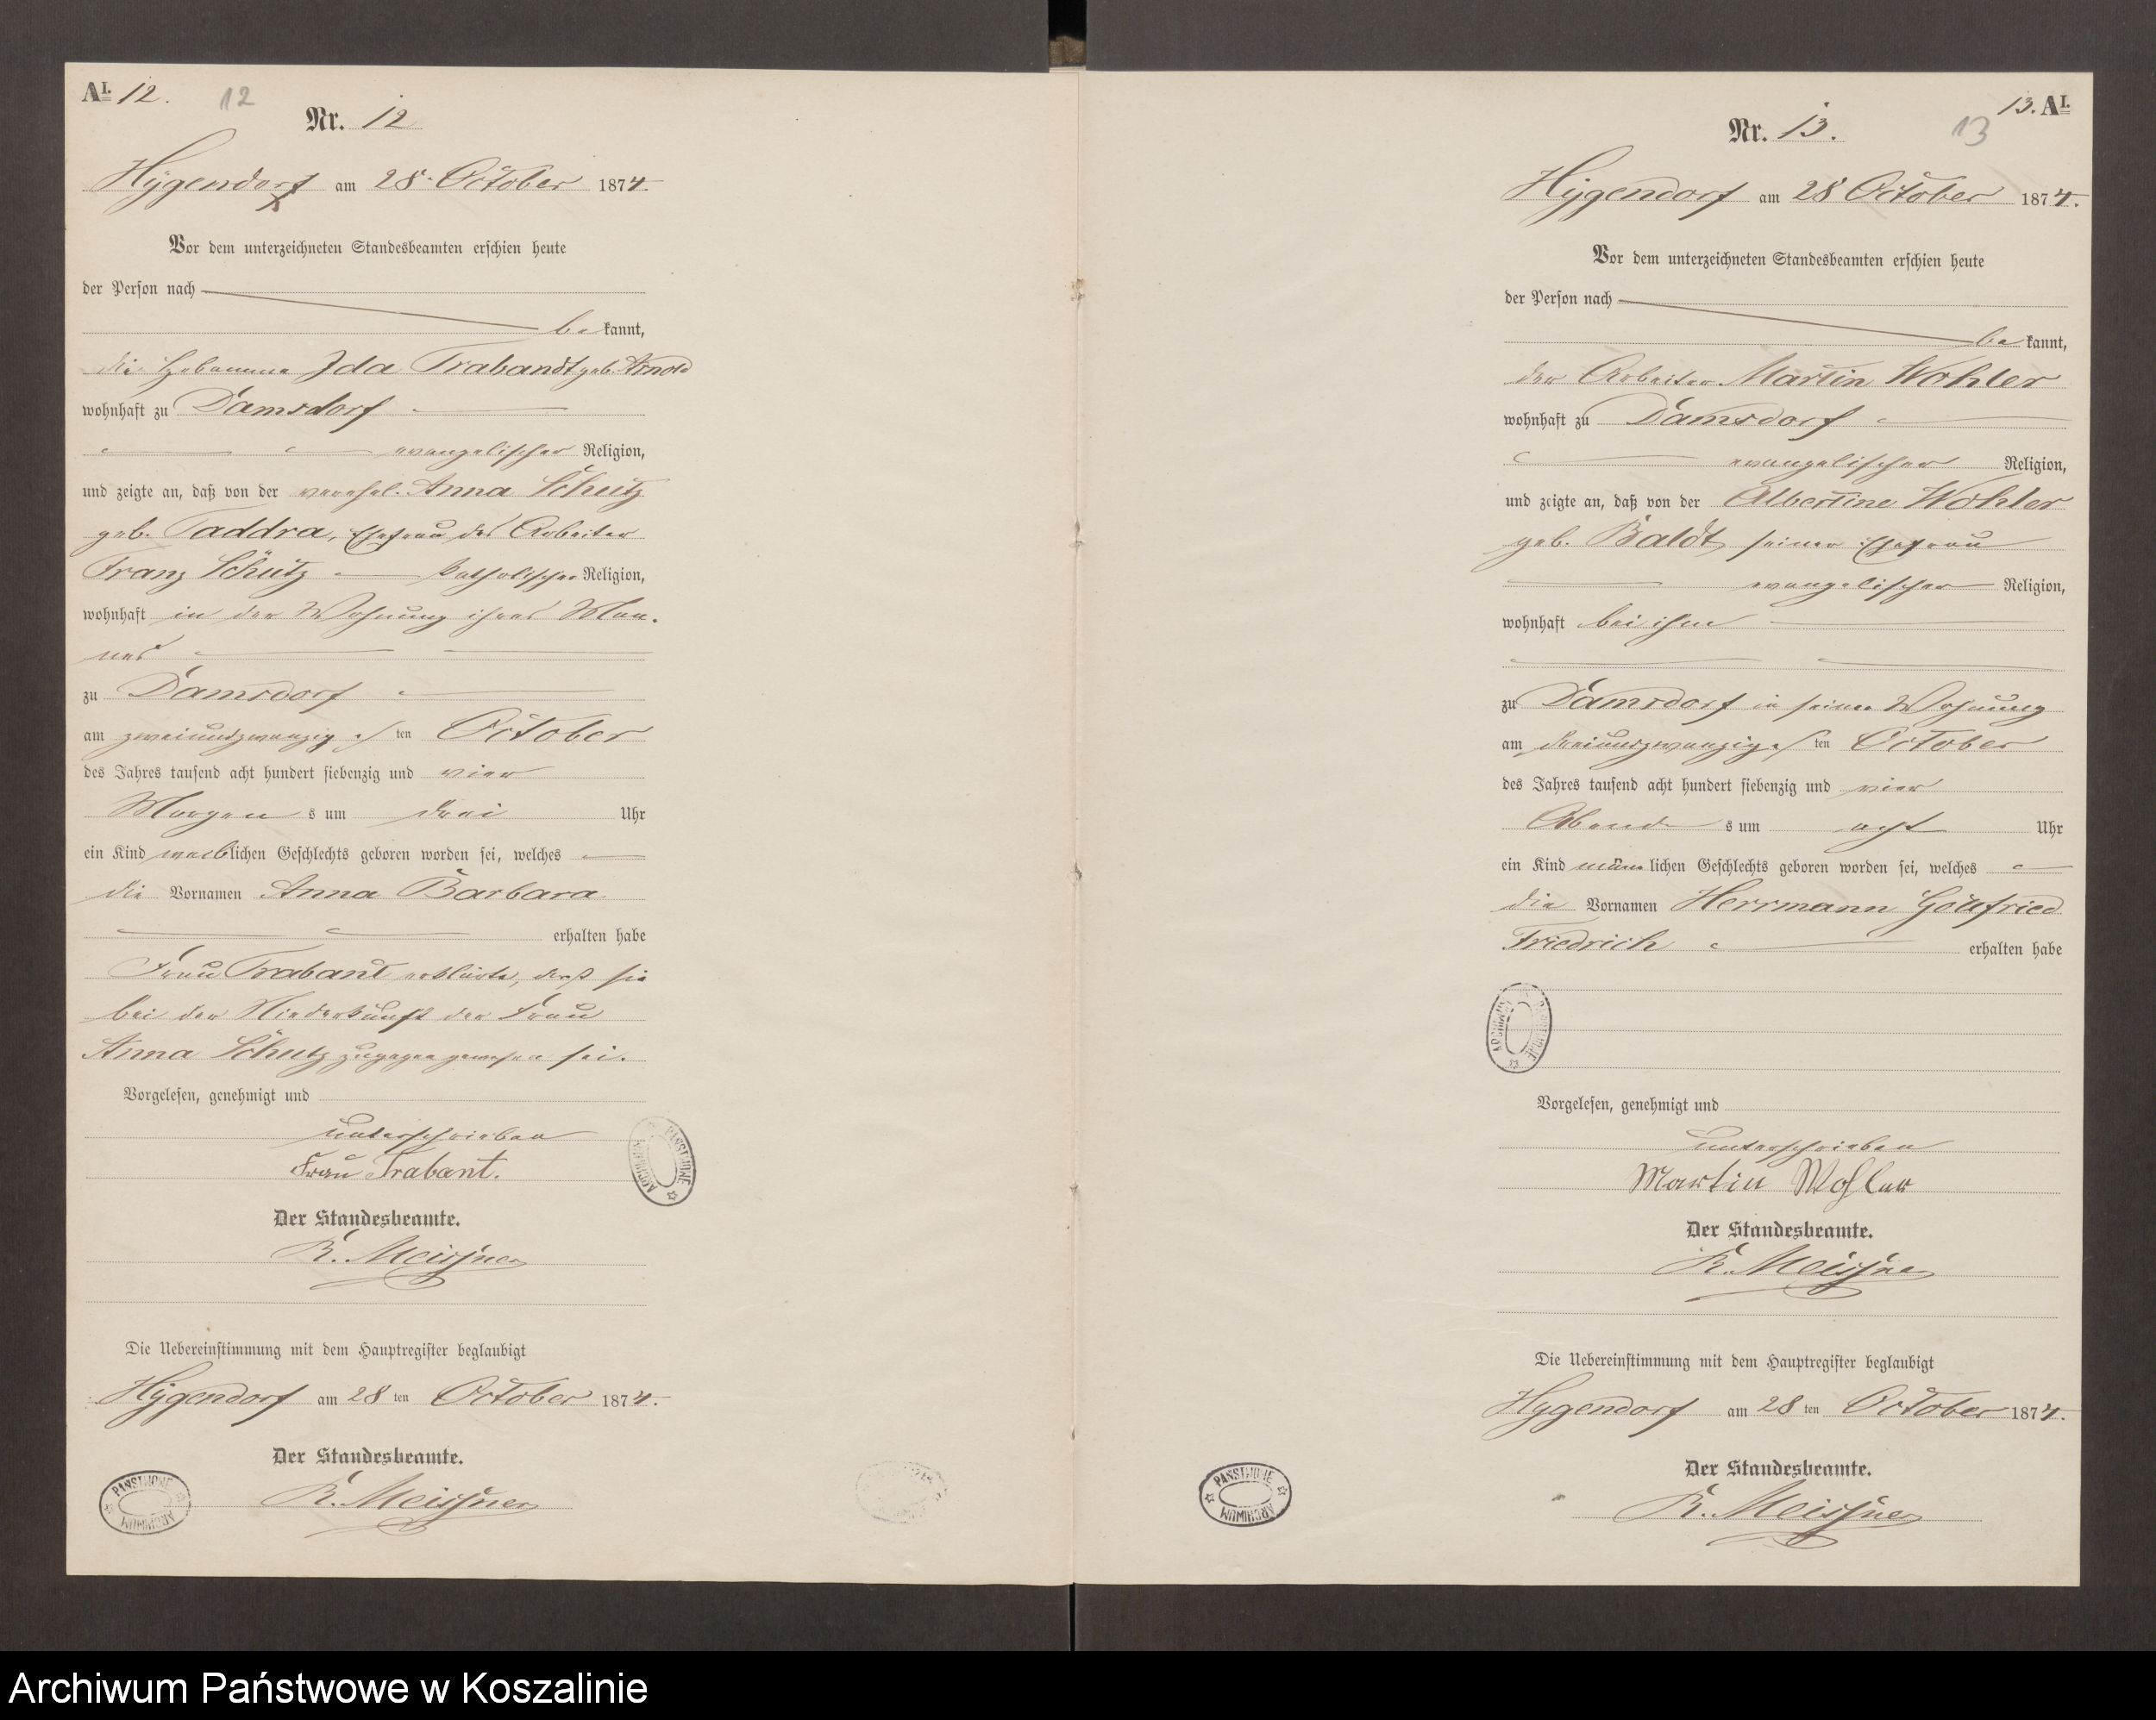 AI. 12.
12
Nr. 12
Hygendorf am 28. October 1874.
Vor dem unterzeichneten Standesbeamten erschien heute
der Person nach
be kannt,
die Hebamme Ida Trabandt geb. Arnold
wohnhaft zu Damsdorf
evangelischer Religion,
und zeigte an, daß von der verehel. Anna Schütz
geb. Taddra, Ehefrau des Arbeiter
Franz Schütz katholischer Religion,
wohnhaft in der Wohnung ihres Man-
nes
zu Damsdorf
am zweiundzwanzigsten October
des Jahres tausend acht hundert siebenzig und vier
Morgens um drei Uhr
ein Kind weiblichen Geschlechts geboren worden sei, welches
die Vornamen Anna Barbara
erhalten habe
Frau Trabant erklärte, daß sie
bei der Niederkunft der Frau
Anna Schutz zugegen gewesen sei.
Vorgelesen, genehmigt und
unterschrieben
Frau Trabant.
Der Standesbeamte.
R. Meissner
Die Uebereinstimmung mit dem Hauptregister beglaubigt
Hygendorf am 28 ten October 1874.
Der Standesbeamte.
R. Meissner
ARCHIWUM PAŃSTWOWE
ARCHIWUM PAŃSTWOWE
13. AI.
13
Nr. 13.
Hygendorf am 28 October 1874.
Vor dem unterzeichneten Standesbeamten erschien heute
der Person nach
be kannt,
der Arbeiter Martin Wohler
wohnhaft zu Damsdorf
evangelischer Religion,
und zeigte an, daß von der Albertine Wohler
geb. Baldt, seiner Ehefrau
evangelischer Religion,
wohnhaft bei ihm
zu Damsdorf in seiner Wohnung
am dreiundzwanzigsten October
des Jahres tausend acht hundert siebenzig und vier
Abends um acht Uhr
ein Kind männlichen Geschlechts geboren worden sei, welches
die Vornamen Herrmann Gottfried
Friedrich erhalten habe
ARCHIWUM PAŃSTWOWE
Vorgelesen, genehmigt und
unterschrieben
Martin Wohler
Der Standesbeamte.
R. Meissner
Die Uebereinstimmung mit dem Hauptregister beglaubigt
Hygendorf am 28 ten October 1874.
Der Standesbeamte.
R. Meissner
PAŃSTWOWE ARCHIWUM
Archiwum Państwowe w Koszalinie